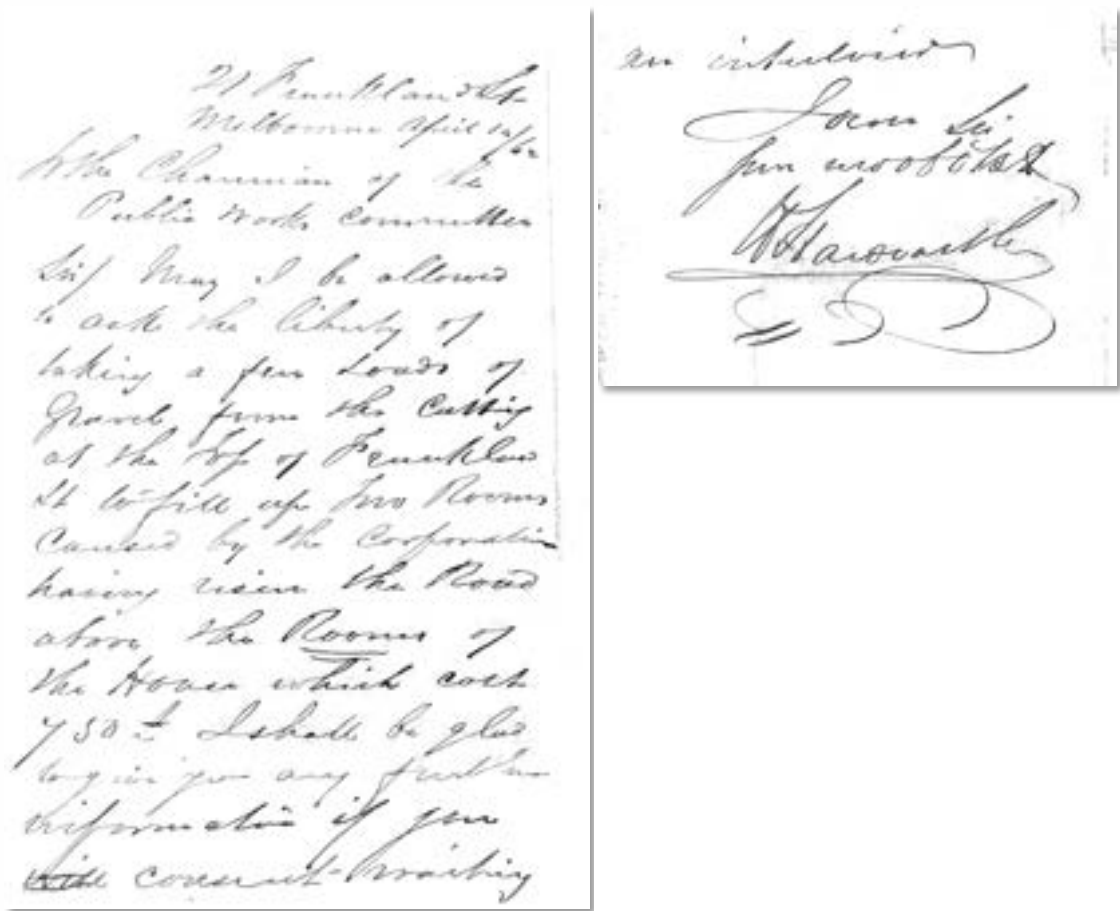 21 Frankland St
Melbourne April 14/62
To the Chairman of the
Public Works Committee
Sir/ May I be allowed
to ask the liberty of
taking a few Loads of
Gravel from the Cutting
at the top of Franklin
St to fill up two Rooms
Caused by the Corporation
having risen the Road
above the Rooms of
the House which cost
750£ I shall be glad
to give you any further
information if you
will consent waiting
an interview
I am Sir
your most obt
W Haworth